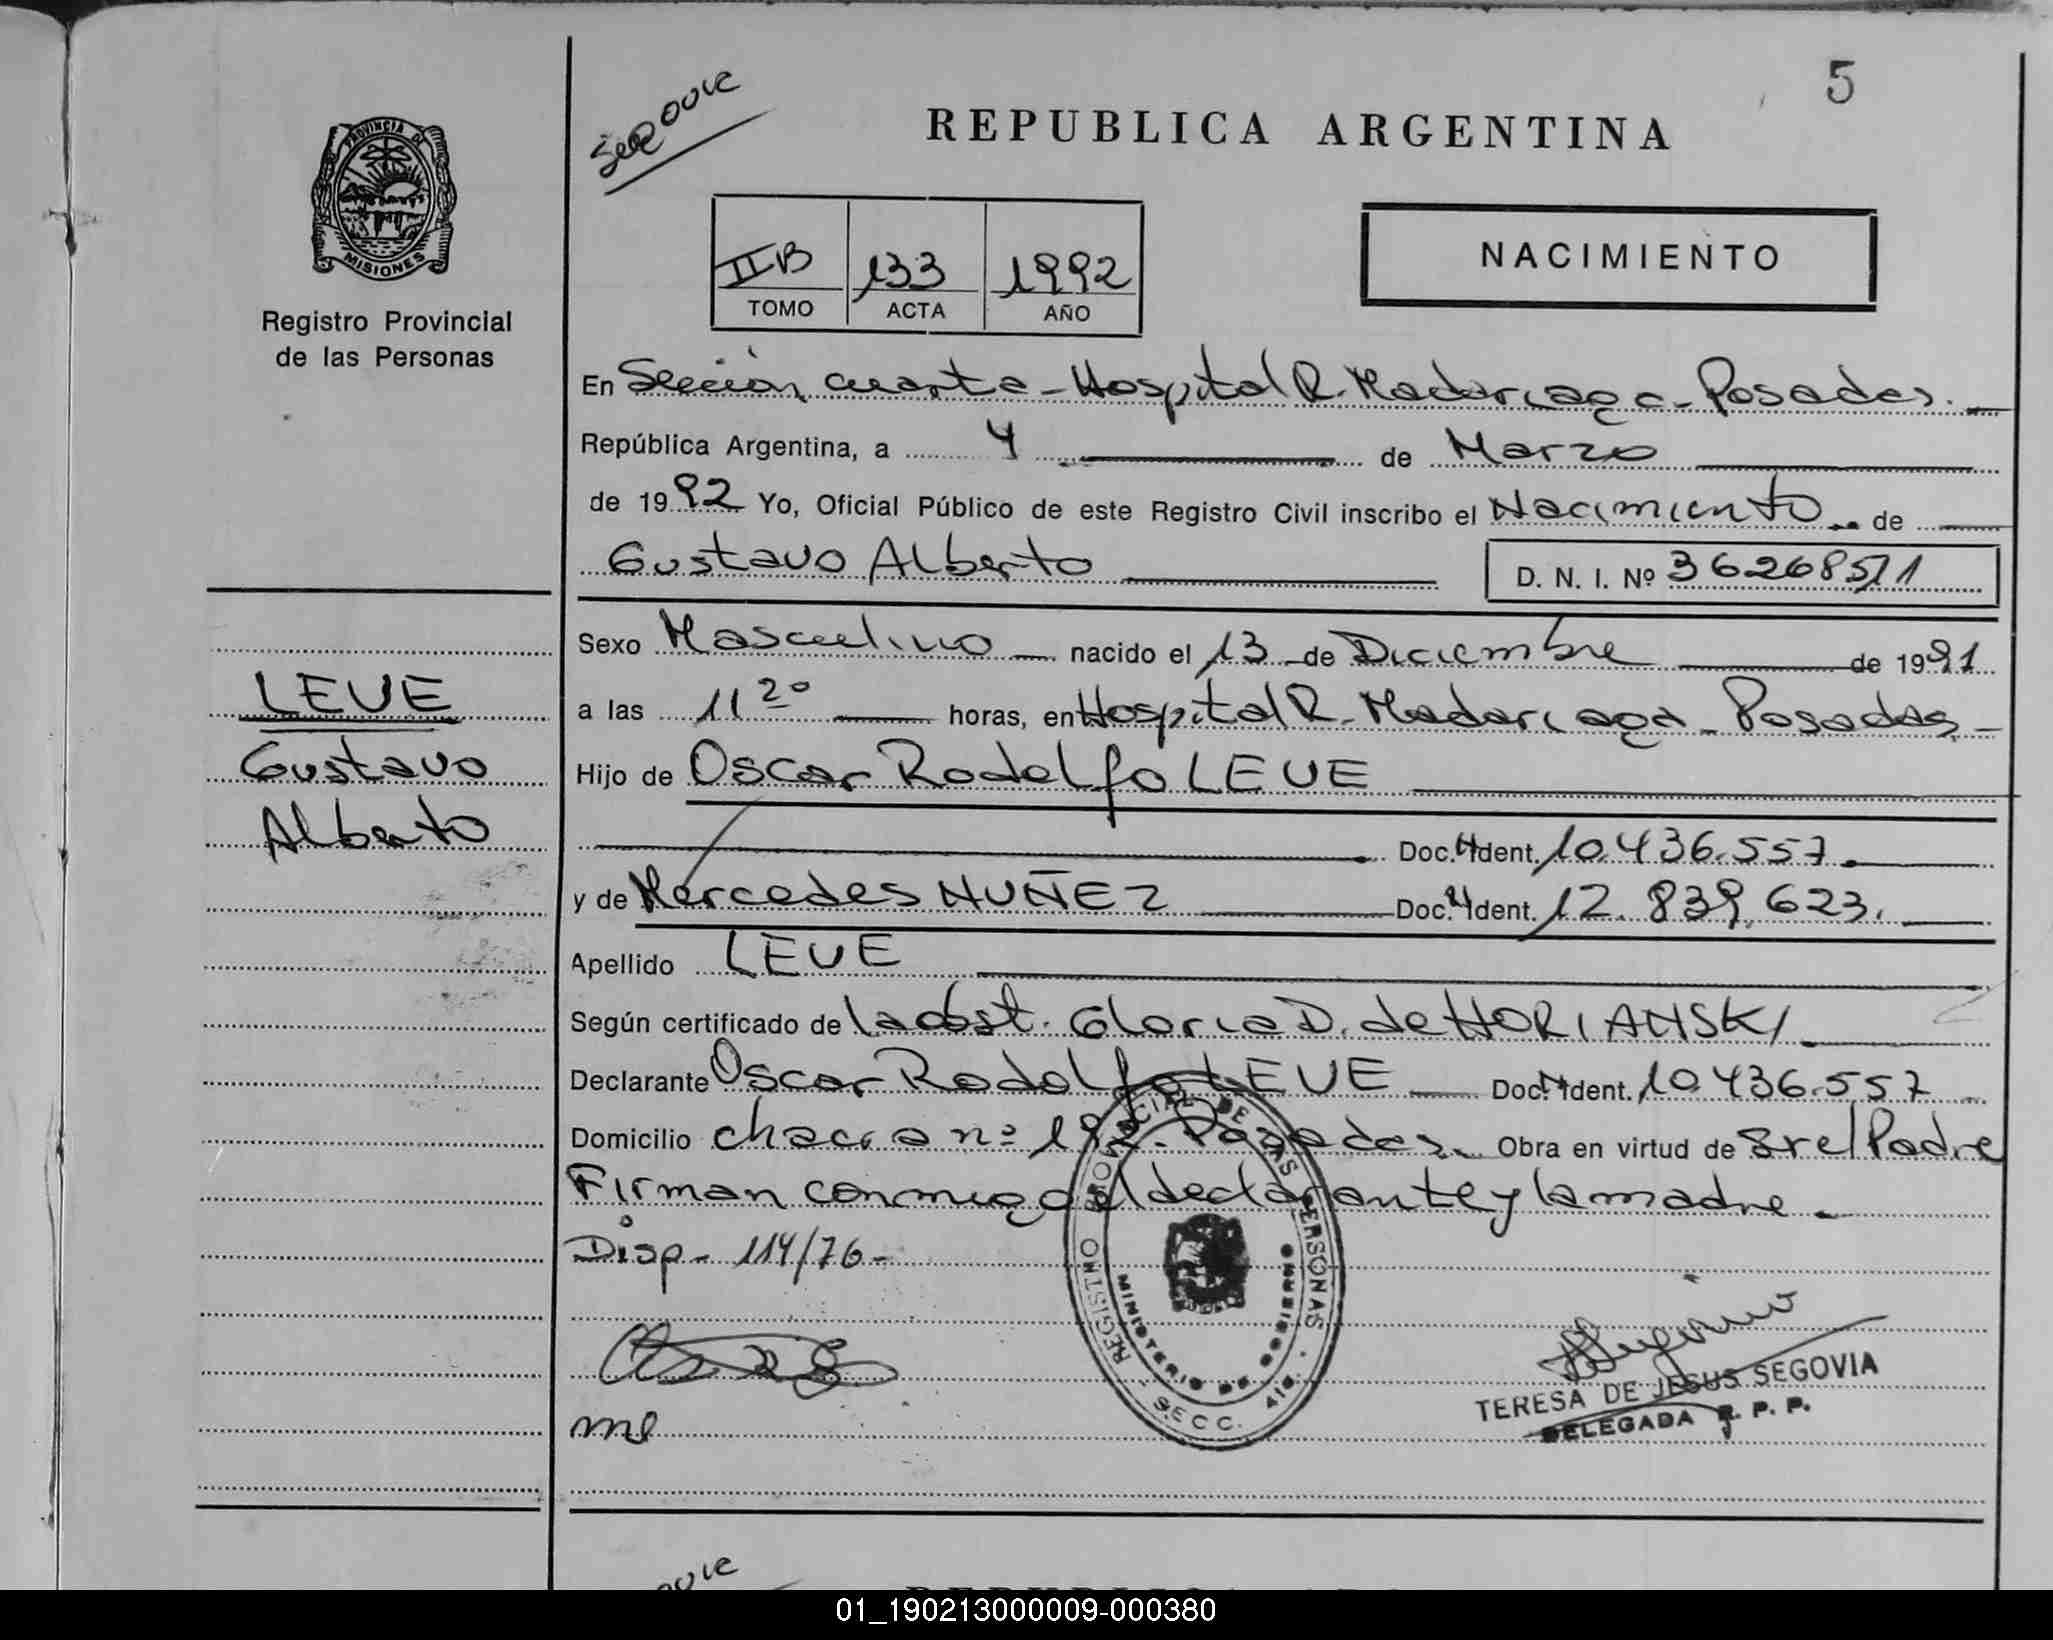 5
REPUBLICA ARGENTINA
PROVINCIA DE
MISIONES
Registro Provincial
de las Personas
IIB 133 1992
TOMO ACTA AÑO
NACIMIENTO
En Sección cuarta - Hospital R. Madariaga - Posadas. -
República Argentina, a 4 de Marzo
de 1992 Yo, Oficial Público de este Registro Civil inscribo el Nacimiento de
Gustavo Alberto D. N. I. Nº 36268511
Sexo Masculino nacido el 13 de Diciembre de 1991
LEUE
a las 11 20 horas, en Hospital R. Madariaga - Posadas -
Gustavo
Hijo de Oscar Rodolfo LEUE
Alberto
Doc. Ident. 10.436.557.
y de Mercedes NUÑEZ Doc. Ident. 12.839.623.
Apellido LEUE
Según certificado de la obst. Gloria D. de HORIANSKI
Declarante Oscar Rodolfo LEUE Doc. Ident. 10.436.557
Domicilio chacra nº Posadas. Obra en virtud de Sr el Padre
Firman conmigo el declarante y la madre. -
Disp - 114/76 -
REGISTRO PROVINCIAL DE LAS PERSONAS
MINISTERIO DE GOBIERNO
SECC. 4ta.
TERESA DE JESUS SEGOVIA
DELEGADA R. P. P.
01_190213000009-000380